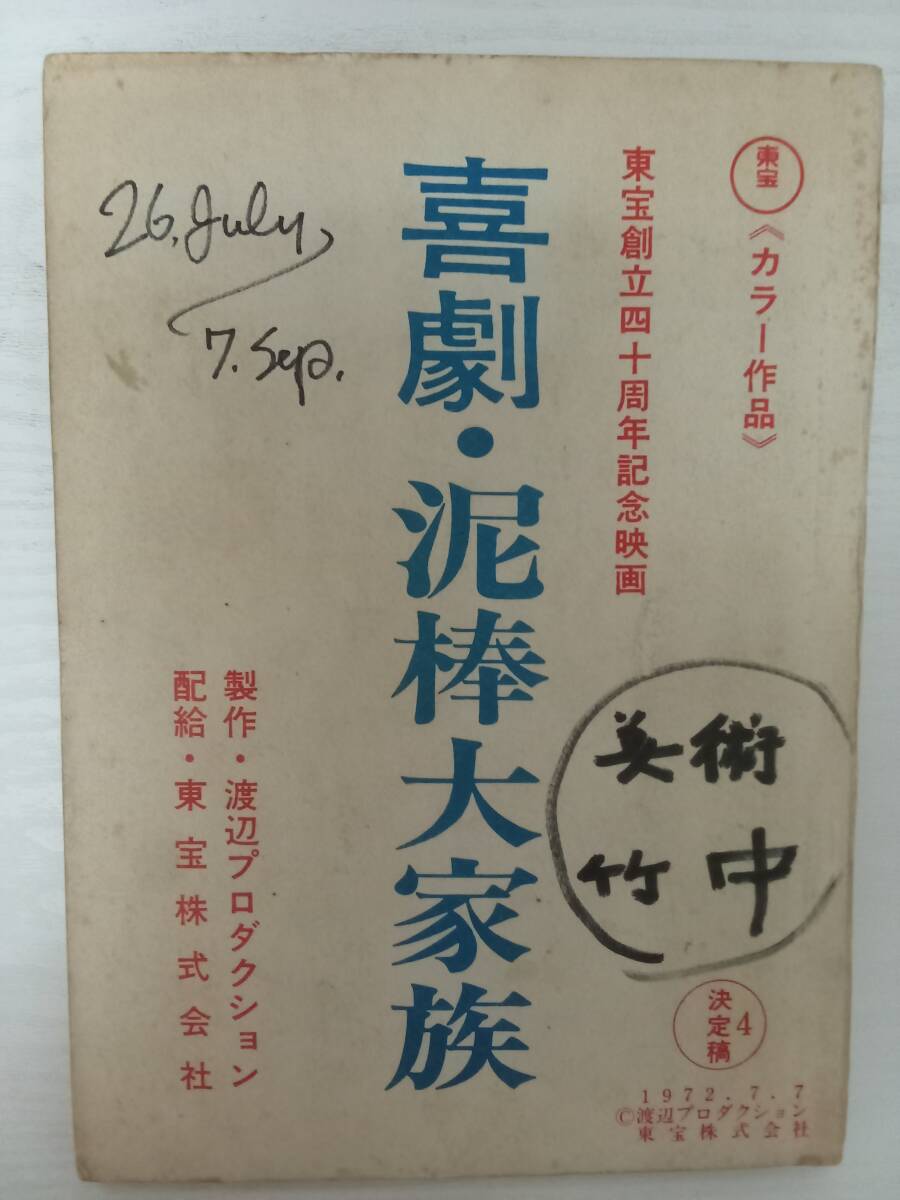 東宝
《カラー作品》
東宝創立四十周年記念映画
喜劇・泥棒大家族
26. July
7. Sep.
美術
竹中
製作・渡辺プロダクション
配給・東宝株式会社
決定稿4
1972.7.7
©渡辺プロダクション
東宝株式会社